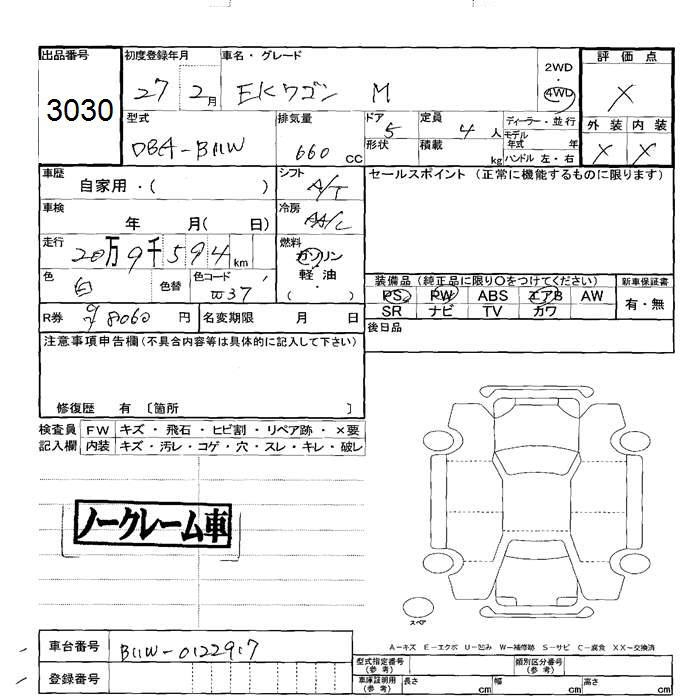 出品番号 初度登録年月 車名・グレード 2WD・4WD 評価点
3030 27 2月 EKワゴン M X
型式 排気量 ドア 5 定員 4人 ディーラー・並行 外装 内装
DBA-B11W 660cc 形状 積載 kg モデル年式 年 ハンドル 左・右 X X
車歴 自家用・( ) シフト A/T セールスポイント (正常に機能するものに限ります)
車検 年 月( 日) 冷房 A/C
走行 20万9千594km 燃料 ガソリン
色 白 色替 色コード W37 軽油
( )
装備品 (純正品に限り〇をつけてください) 新車保証書
PS PW ABS エアB AW 有・無
SR ナビ TV カワ
R券 98060円 名変期限 月 日 後日品
注意事項申告欄(不具合内容等は具体的に記入して下さい)
修復歴 有 〔箇所 〕
検査員 FW キズ・飛石・ヒビ割・リペア跡・×要
記入欄 内装 キズ・汚レ・コゲ・穴・スレ・キレ・破レ
ノークレーム車
スペア
A-キズ E-エクボ U-凹み W-補修跡 S-サビ C-腐食 XX-交換済
車台番号 B11W-0122917
登録番号
型式指定番号(参考) 類別区分番号(参考)
車庫証明用(参考) 長さ cm 幅 cm 高さ cm